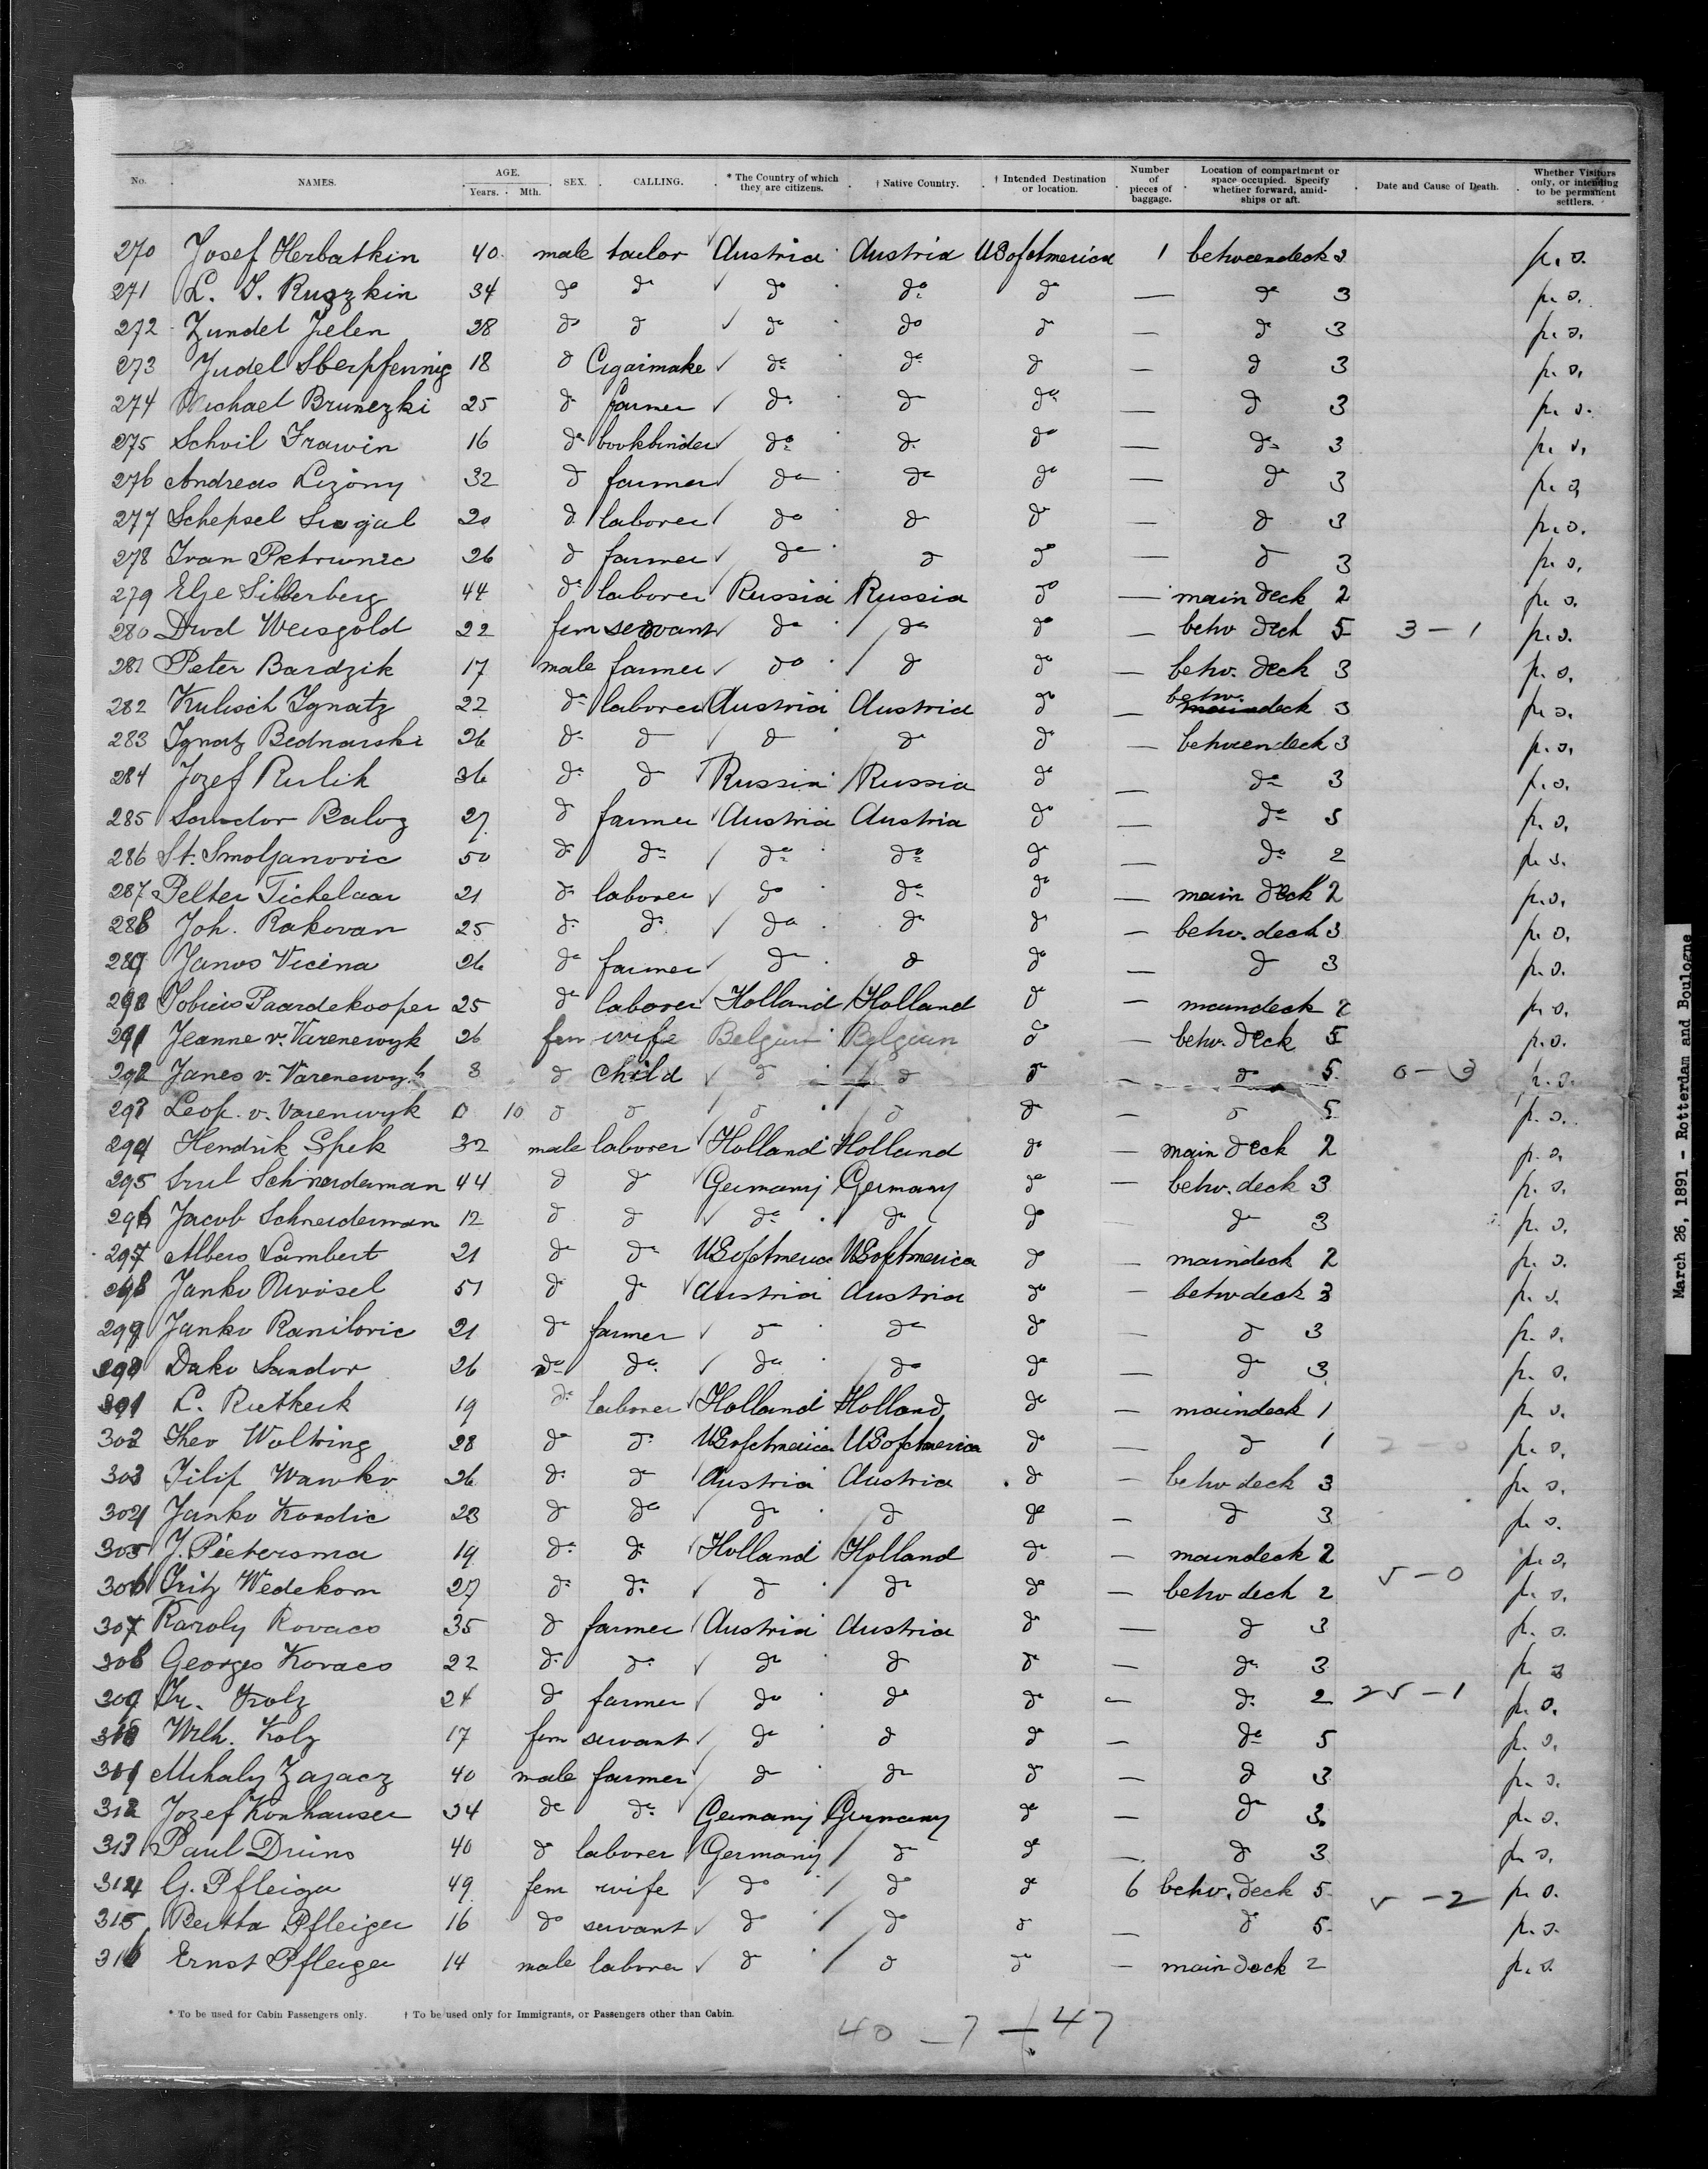 No. NAMES. AGE. Years. Mth. SEX. CALLING. * The Country of which they are citizens. † Native Country. † Intended Destination or location. Number of pieces of baggage. Location of compartment or space occupied. Specify whether forward, amidships or aft. Date and Cause of Death. Whether Visitors only, or intending to be permanent settlers.
270 Josef Herbatkin 40 male tailor Austria Austria US of America 1 betweendeck 3 p. s.
271 L. J. Ruszkin 34 do do do do do — do 3 p. s.
272 Zundel Jelen 28 do d do do do — do 3 p. s.
273 Judel Sberpfennig 18 d Cigarmake do do d — d 3 p. s.
274 Michael Brunezki 25 do farmer do do do — d 3 p. s.
275 Schoil Frawin 16 do bookbinder do do do — do 3 p. s.
276 Andreas Lizony 32 d farmer do do do — do 3 p. s.
277 Schepsel Segal 20 d laborer do do do — d 3 p. s.
278 Ivan Petrunic 26 d farmer do d do — d 3 p. s.
279 Elje Silberberg 44 do laborer Russia Russia do — main deck 2 p. s.
280 Dwd Weisgold 22 fem servant do do do — betw deck 5 3 – 1 p. s.
281 Peter Bardzik 17 male farmer do d do — betw. deck 3 p. s.
282 Kulisch Ignatz 22 do laborer Austria Austria do — betw. deck 3 p. s.
283 Ignatz Bednarski 26 do d d do do — betweendeck 3 p. s.
284 Jozef Rulik 36 do d Russia Russia do — do 3 p. s.
285 Sandor Balog 27 d farmer Austria Austria do — do 3 p. s.
286 St. Smoljanovic 50 do do do do do — do 2 p. s.
287 Pelter Tichelaar 21 do laborer do do do — main deck 2 p. s.
288 Joh. Rakovan 25 do do do do do — betw. deck 3 p. s.
289 Janos Vicina 26 do farmer do d do — d 3 p. s.
290 Tobias Paardekooper 25 do laborer Holland Holland do — maindeck 2 p. s.
291 Jeanne v. Varenewyk 26 fem wife Belgium Belgium do — betw. deck 5 p. s.
292 Janes v. Varenewyk 8 d child d d do — d 5 0 – 3 p. s.
293 Leop. v. Varenwyk 0 10 d d d d do — d 5 p. s.
294 Hendrik Spek 32 male laborer Holland Holland do — main deck 2 p. s.
295 Srul Schneiderman 44 d d Germany Germany do — betw. deck 3 p. s.
296 Jacob Schneiderman 12 d d do do do — do 3 p. s.
297 Albers Lambert 21 do do US of America US of America do — maindeck 2 p. s.
298 Janko Novosel 51 do do Austria Austria do — betw deck 3 p. s.
299 Janko Ranilovic 21 do farmer do do do — d 3 p. s.
Dako Sandor 26 do do do do do — do 3 p. s.
301 L. Rietkerk 19 do laborer Holland Holland do — maindeck 1 p. s.
302 Theo Woltring 28 do do US of America US of America do — d 1 2 – 0 p. s.
303 Filip Wawko 26 do do Austria Austria do — betw deck 3 p. s.
304 Janko Kordic 23 do do do d do — d 3 p. s.
305 J. Pietersma 19 do do Holland Holland do — maindeck 2 p. s.
306 Fritz Wedekom 27 do do d do do — betw deck 2 5 – 0 p. s.
307 Karoly Kovacs 35 d farmer Austria Austria do — d 3 p. s.
308 Georges Kovacs 22 do do do d do — do 3 p. s.
309 Fr. Kolz 24 do farmer do do do — do 2 25 – 1 p. s.
310 Wilh. Kolz 17 fem servant do d do — do 5 p. s.
311 Mihaly Zajacz 40 male farmer do do do — d 3 p. s.
312 Jozef Konhauser 34 do do Germany Germany do — do 3 p. s.
313 Paul Druns 40 d laborer Germany do do — d 3 p. s.
314 G. Pfleiger 49 fem wife do do do 6 betw. deck 5 5 – 2 p. s.
315 Bertha Pfleiger 16 do servant do do d — d 5 p. s.
316 Ernst Pfleiger 14 male laborer d d do — main deck 2 p. s.
* To be used for Cabin Passengers only. † To be used only for Immigrants, or Passengers other than Cabin.
40 – 7 – 47
March 26, 1891 - Rotterdam and Boulogne